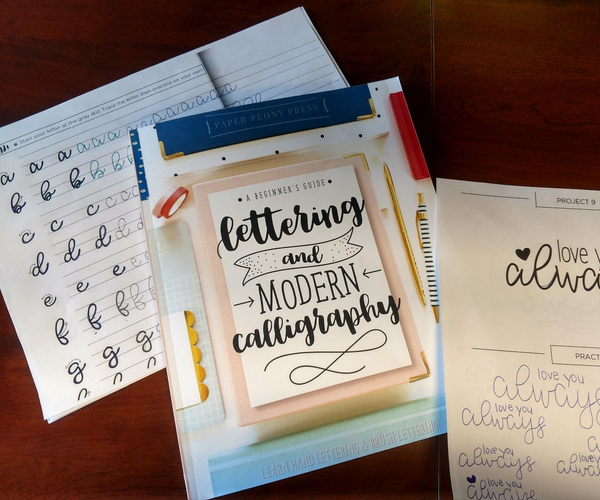 Start your letter at the gray dot! Trace the letter then practice on your own
a a a a a a a a a a a
b b b b b b
c c c
d d d
e e e
f f f f
g g
PAPER PEONY PRESS
A BEGINNER'S GUIDE
lettering
and
MODERN
calligraphy
LEARN HAND LETTERING & BRUSH LETTERING
PROJECT 9
love
always
love you
always
love you
always
love you
always
love you
always
love you
always